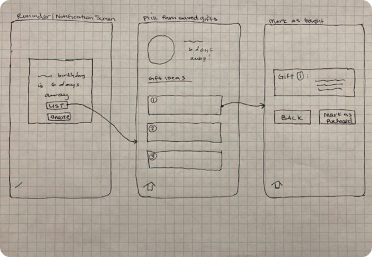 Reminder/Notification Screen
birthday
is 6 days
away
LIST
Ignore
Pick from saved gifts
6 days
away!
Gift ideas
1
2
3
Mark as bought
Gift 1
BACK
Mark as
Purchased